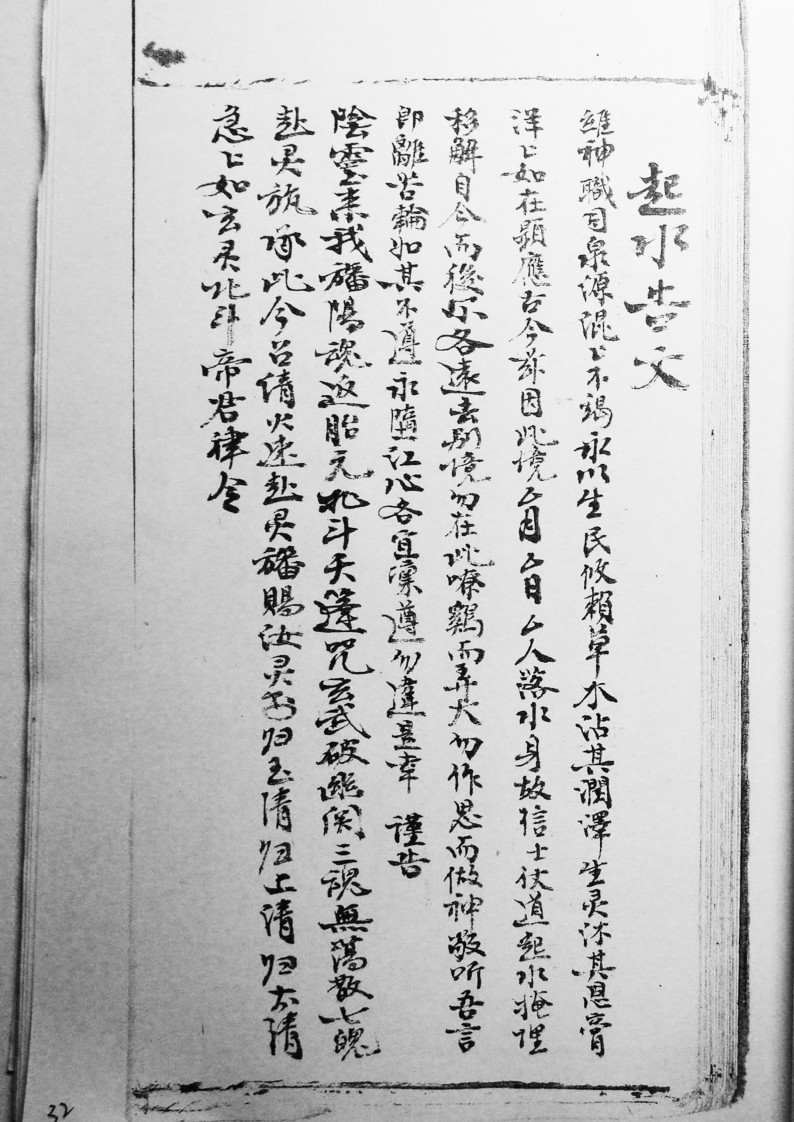 起水告文
維神職司泉源混〻不竭永以生民攸賴草木沾其潤澤生灵沐其恩膏
洋〻如在顕應古今茲因此境厶月厶日厶人落水身故信士仗道起水掩埋
移解自今而後尔各遠去別境勿在此喽鷄而弄犬勿作思而做神敬听吾言
即離苦輪如其不遵永墮江心各宜凛遵勿違是幸 謹告
陰靈来我旛陽魂返胎元北斗天蓬咒玄武破幽関三魂無蕩散七魄
赴灵旐承此今召倩火速赴灵旛賜汝灵归玉清归上清归太清
急〻如玄灵北斗帝君律令
32